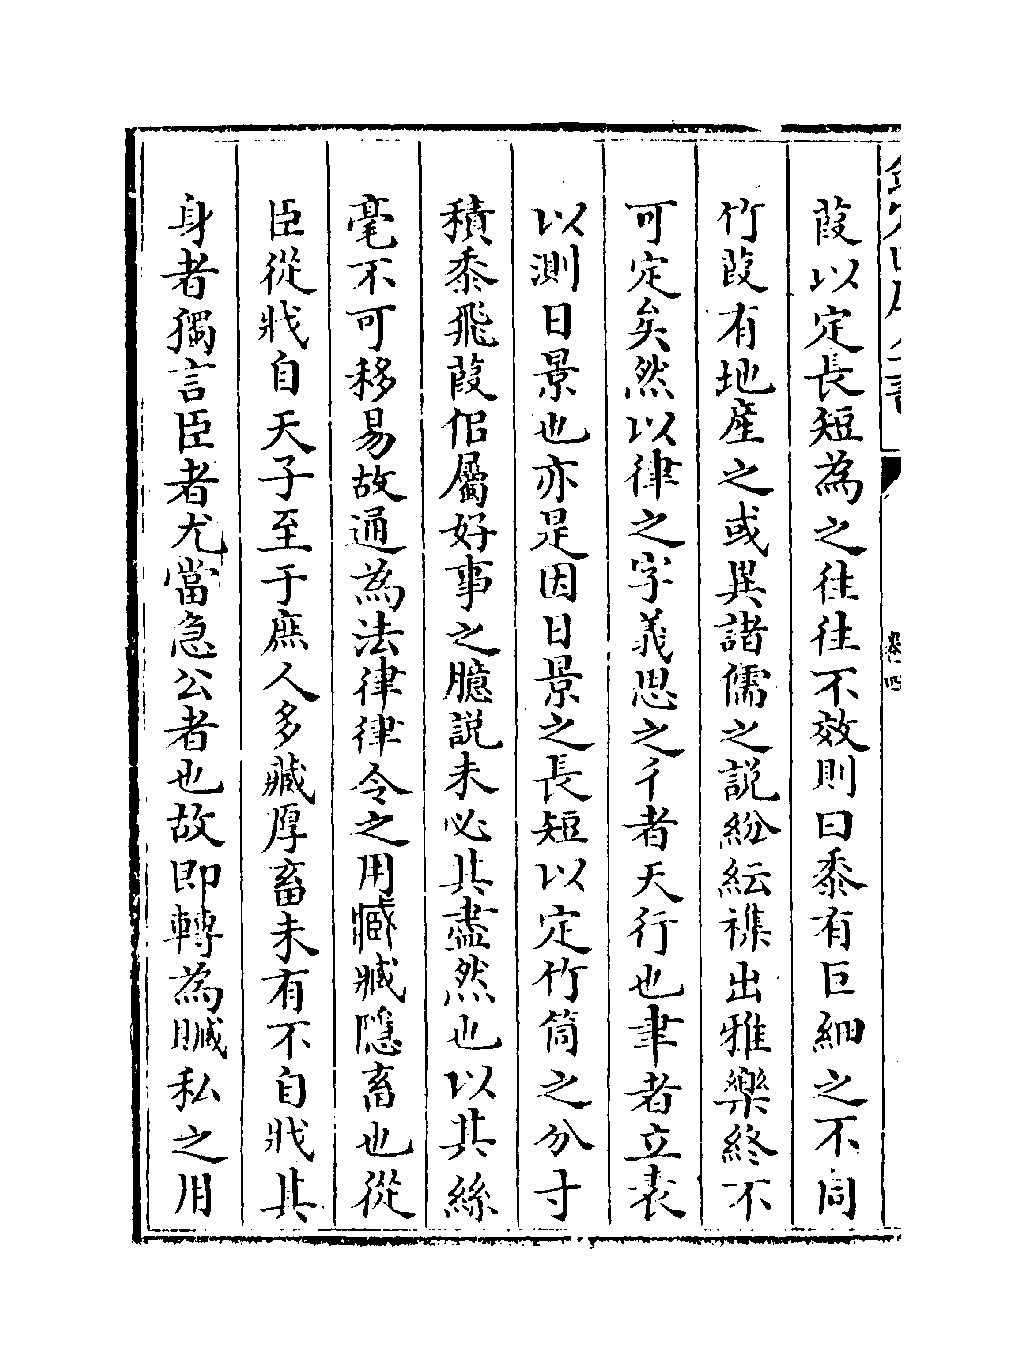 葭以定長短為之往往不效則曰黍有巨細之不同
竹葭有地產之或異諸儒之說紛紜襍出雅樂終不
可定矣然以律之字義思之彳者天行也聿者立表
以測日景也亦是因日景之長短以定竹筒之分寸
積黍飛葭侣屬好事之臆說未必其盡然也以其絲
毫不可移易故通為法律律令之用臧臧隱畜也從
臣從戕自天子至于庶人多臧厚畜未有不自戕其
身者獨言臣者尤當急公者也故即轉為贓私之用
卷四